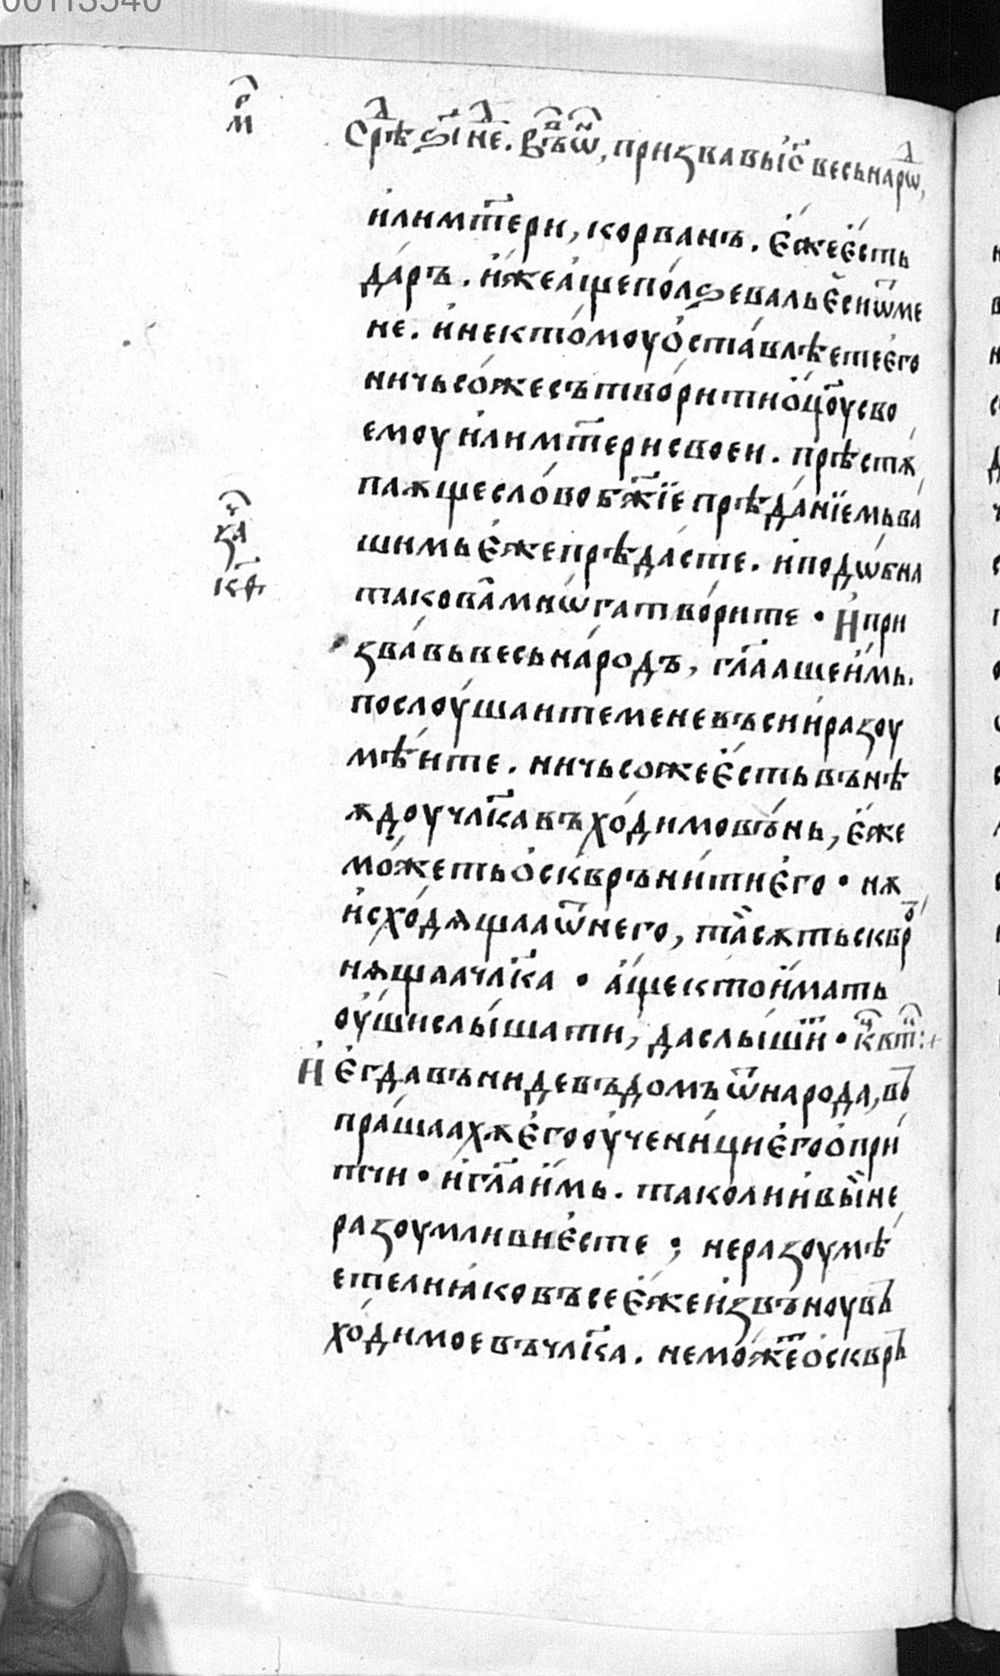 00113540
мр҃
Срѣⷣ ѕ҃і неⷣ. въⷡ҇ ѡⷩ҇, призвавы і҃с весьнарѡⷣ,
и҆лимт҃ери, корванъ. є҆жеє҆сть
да́ръ. и҆жеа҆щепо́лѕевальє҆сиѿме
не. и҆некто́моуо҆ста́влѣетеє҆го
ничьсо́жесътво́ритио҆ц҃оусво
емоу и҆лимт҃ерисвоеи. прѣстѫ
паѫщесло́вобж҃їепрѣда́нїемьва
шимьє҆жепрѣда́сте. и҆подѡ́бна
такова̀мнѡ́гатво́рите · И҆при
зва́вьвесьнаро́дъ, гл҃аашеи҆мь.
послоу́шаитеменевъсии҆разоу
мѣ́ите. ничьсожеє҆стьвънѣ
ѫдоучл҃кавъхо́димовъ́нь, є҆же
мо́жетьо҆сквръни́тиє҆го · нѫ
и҆схо́дѧщааѿнего, та̀сѫтьсквр
нѧщаачл҃ка · а҆щектои҆мать
оу҆шислы́шати, даслы́шїи · кⷩ҇ втⷪ҇:+
за҄
к҃ѳ
И҆ є҆гдавъни́девъдомъѿнарода, въ
пра́шаахѫє҆гооу҆чени́циє҆гоо҆при́
тчи · и҆гл҃аи҆мь. такѡлии҆вы̀не
разоумливиє҆сте ; неразоумѣ́
етелиꙗ҆ковъсеє҆жеи҆звъноувъ
хо́димоевъчл҃ка. неможе́тьо҆сквръ